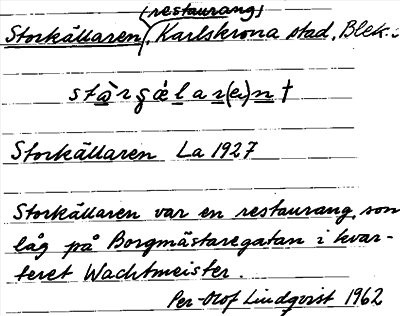 (restaurang)
Storkällaren, Karlskrona stad, Blek.
Storkällaren La 1927
Storkällaren var en restaurang, som
låg på Borgmästaregatan i kvar-
teret Wachtmeister.
Per-Olof Lindqvist 1962